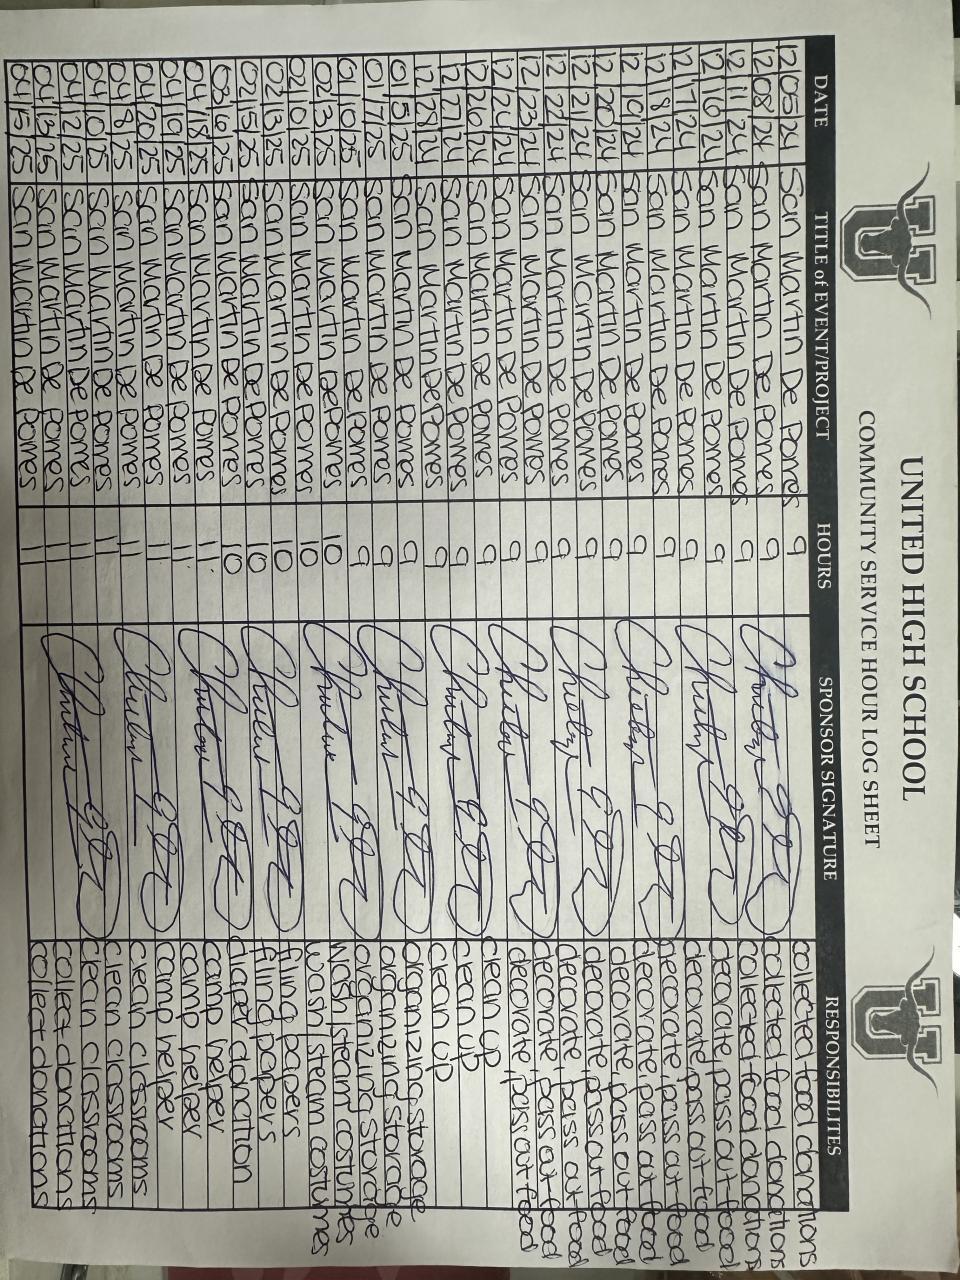 UNITED HIGH SCHOOL
COMMUNITY SERVICE HOUR LOG SHEET
DATE TITLE of EVENT/PROJECT HOURS SPONSOR SIGNATURE RESPONSIBILITES
12/05/24 San Martin De Porres 9 collected food donations
12/08/24 San Martin De Porres 9 collected food donations
12/11/24 San Martin De Porres 9 collected food donations
12/16/24 San Martin De Porres 9 decorate, pass out food
12/17/24 San Martin De Porres 9 decorate, pass out food
12/18/24 San Martin De Porres 9 decorate, pass out food
12/19/24 San Martin De Porres 9 decorate, pass out food
12/20/24 San Martin De Porres 9 decorate, pass out food
12/21/24 San Martin De Porres 9 decorate, pass out food
12/22/24 San Martin De Porres 9 decorate, pass out food
12/23/24 San Martin De Porres 9 decorate, pass out food
12/24/24 San Martin De Porres 9 decorate, pass out food
12/26/24 San Martin De Porres 9 clean up
12/27/24 San Martin De Porres 9 clean up
12/28/24 San Martin De Porres 9 clean up
01/5/25 San Martin De Porres 9 organizing storage
01/7/25 San Martin De Porres 9 organizing storage
01/10/25 San Martin De Porres 9 organizing storage
02/3/25 San Martin De Porres 10 wash/steam costumes
02/10/25 San Martin De Porres 10 wash/steam costumes
02/13/25 San Martin De Porres 10 filing papers
02/15/25 San Martin De Porres 10 filing papers
03/6/25 San Martin De Porres 10 diaper donation
04/18/25 San Martin De Porres 11 camp helper
04/19/25 San Martin De Porres 11 camp helper
04/20/25 San Martin De Porres 11 camp helper
04/8/25 San Martin De Porres 11 clean classrooms
04/10/25 San Martin De Porres 11 clean classrooms
04/12/25 San Martin De Porres 11 clean classrooms
04/13/25 San Martin De Porres 11 collect donations
04/15/25 San Martin De Porres 11 collect donations